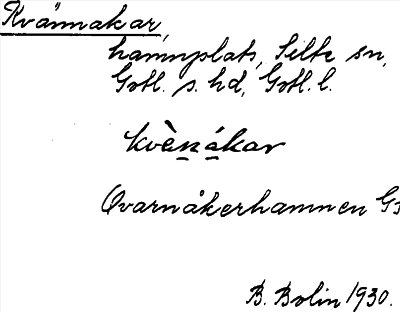 Kvännakar,
hamnplats, Silte sn,
Gotl. s. hd, Gotl. l.
kvènákar
Qvarnåkerhamnen Gs
B. Bolin 1930.